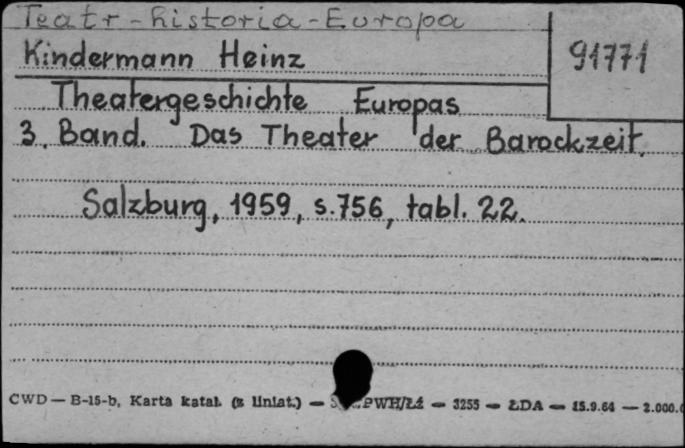 Teatr - historia - Europa
Kindermann Heinz
91771
Theatergeschichte Europas
3. Band. Das Theater der Barockzeit.
Salzburg, 1959, s. 756, tabl. 22.
CWD — B-15-b, Karta katal. (z liniat.) — PWH/Łź — 3255 — ŁDA — 15.9.64 — 2.000.